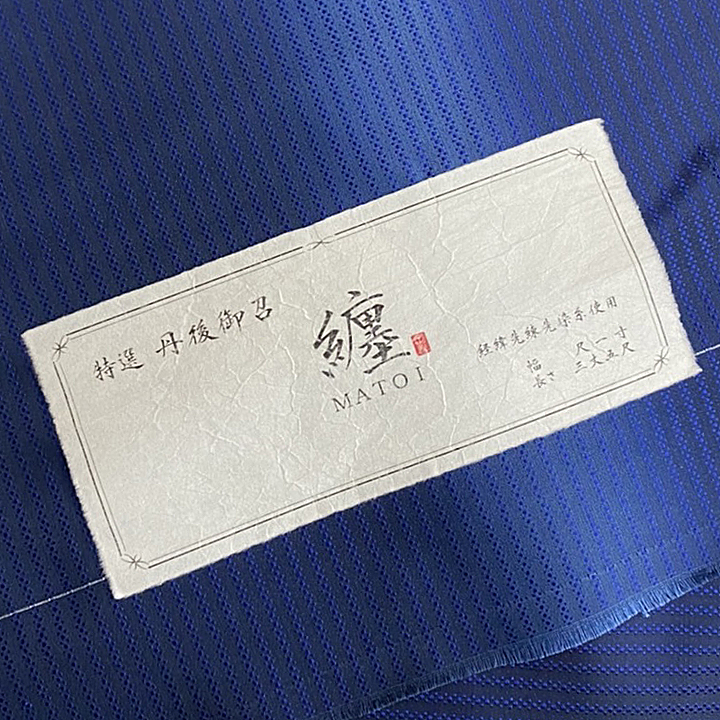 特選 丹後御召
纏
MATOI
経緯先練先染糸使用
幅 尺一寸
長さ 三丈五尺